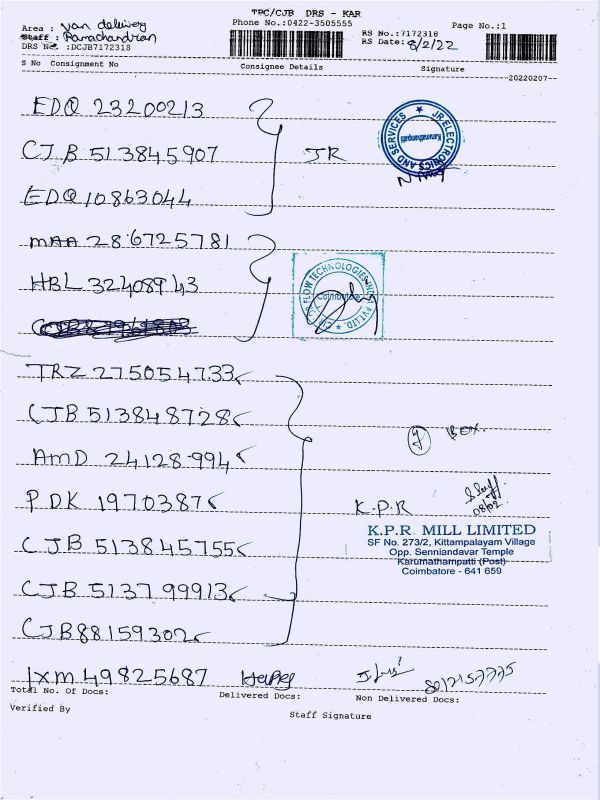 TPC/CJB DRS - KAR
Area : van delivery
Phone No.:0422-3505555
Page No.:1
Staff : Ramachandran
RS No.:7172318
DRS No. :DCJB7172318
RS Date: 8/2/22
S No Consignment No Consignee Details Signature
20220207
EDQ 23200213
CJB 513845907 JR
JR ELECTRONICS AND SERVICES
Karumathampatti
EDQ 10863044
MAA 286725781
HBL 32408943
FLOW TECHNOLOGIES PVT LTD.
Coimbatore
TRZ 275054733
CJB 513848728
AMD 24128994
7 BOX
PDK 19703876
K.P.R
08/02
K.P.R. MILL LIMITED
SF No. 273/2, Kittampalayam Village
Opp. Senniandavar Temple
Karumathampatti (Post)
Coimbatore - 641 659
CJB 513845755
CJB 513799913
CJB 88159302
IXM 49825687
Total No. Of Docs: Delivered Docs: Non Delivered Docs:
Verified By
Staff Signature